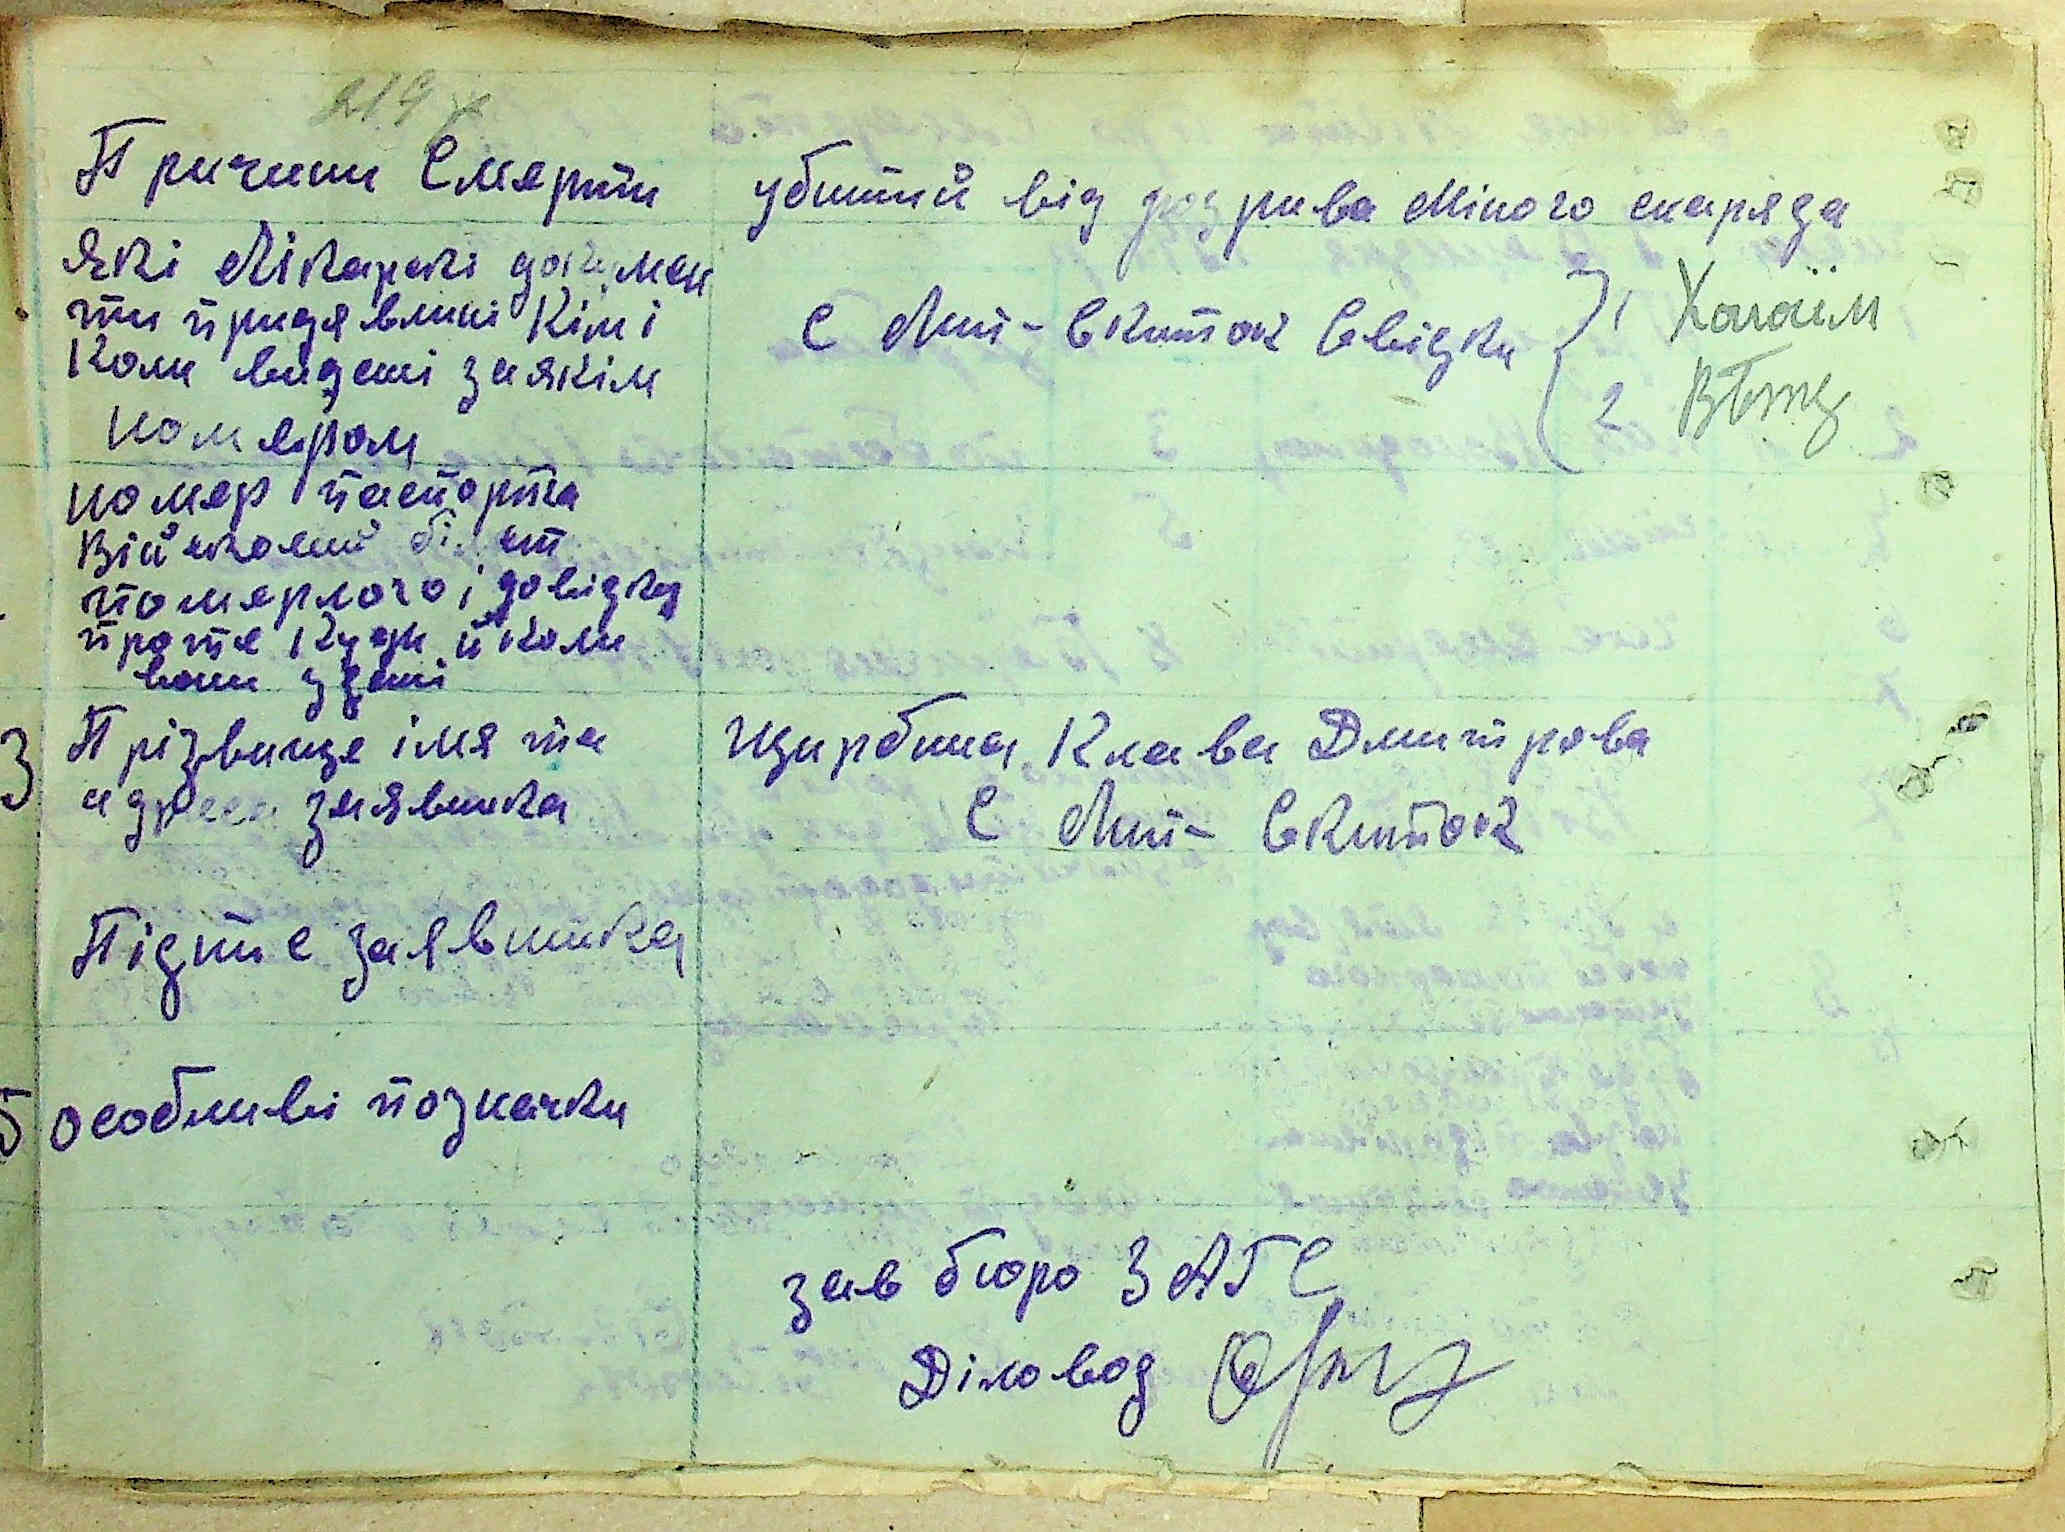 219
Причини Смерти
убитий від розрива Міного снаряда
Які Лікарскі докумен
ти придявлині Кім і
Коли видені заякім
номяром
С Мит- Скиток Свідки
1 Хагаім
2
номяр паспорта
Війсковий білєт
помярлого і довідку
протє Куди й коли
вони здані
3 Прізвище імя та
адреса заявника
Щирбина Клава Дмитрова
С Мит- Скиток
Підпис заявника
5 особливі позначки
зав бюро ЗАГС
Діловод